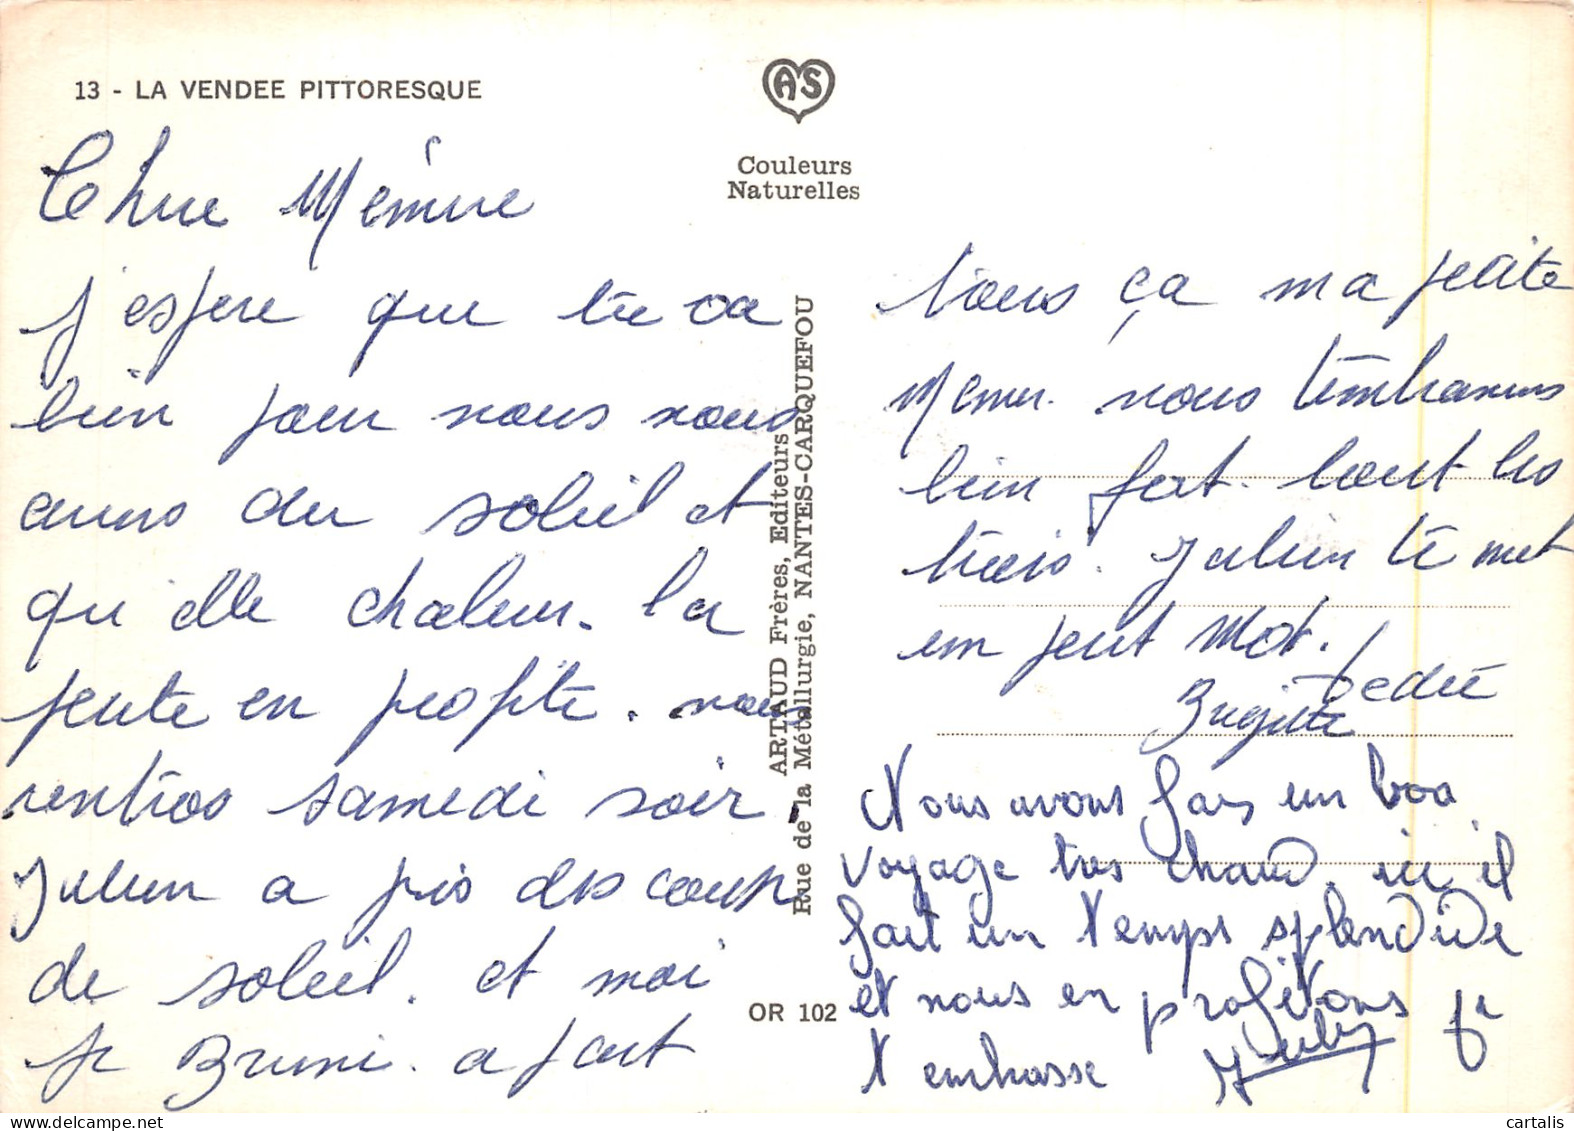 13 - LA VENDEE PITTORESQUE
AS
Couleurs
Naturelles
Chere Mémére
j'espere que tu va
bien pour nous nous
avons du soleil et
qu'elle chaleur. la
petite en profite. nous
rentros samedi soir.
Julien a pris des coup
de soleil. et moi
je Bruni. a part
ARTAUD Frères, Editeurs
Rue de la Métallurgie, NANTES-CARQUEFOU
OR 102
tous ça ma petite
Memer. nous t'embrassons
bien fort. tout les
trois. Julien te met
un petit Mot.
Dédée
Brigitte
Nous avons fais un bon
voyage tres chaud. ici il
fait un temps splendide
et nous en profitons je
t'embrasse